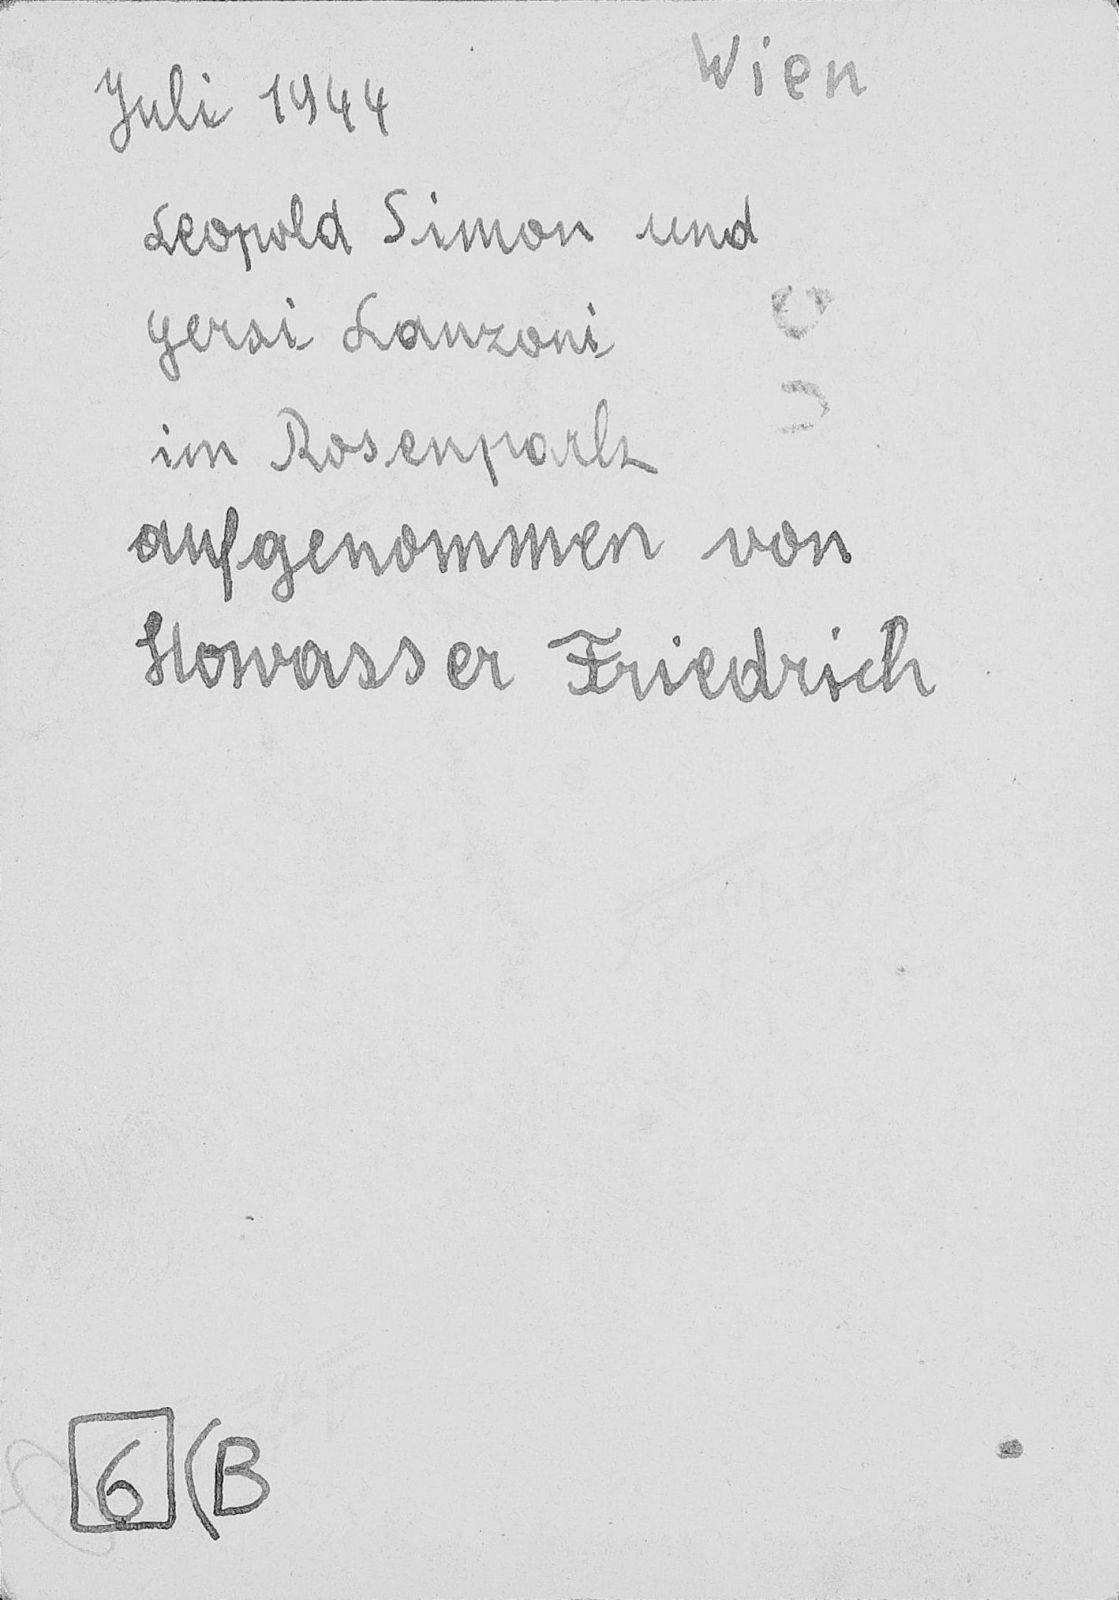 Wien
Juli 1944
Leopold Simon und
Gersi Lanzoni
im Rosenpark
aufgenommen von
Stowasser Friedrich
6 (B